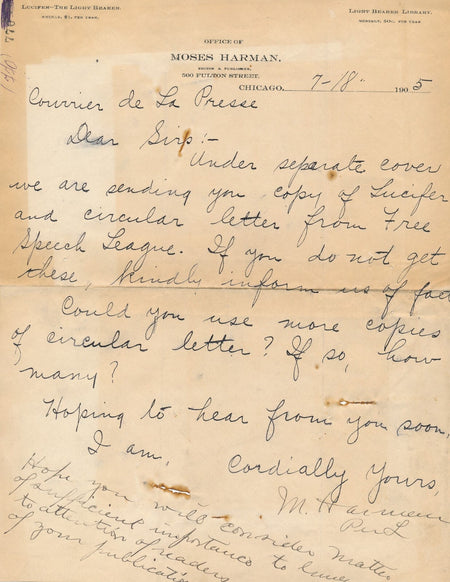 LUCIFER—THE LIGHT BEARER.
LIGHT BEARER LIBRARY.
OFFICE OF
MOSES HARMAN,
EDITOR & PUBLISHER,
500 FULTON STREET,
CHICAGO, 7-18. 1905
Courrier de La Presse
Dear Sirs:-
Under separate cover
we are sending you copy of Lucifer
and circular letter from Free
Speech League. If you do not get
these, kindly inform us of fact
Could you use more copies
of circular letter? If so, how
many?
Hoping to hear from you soon,
I am,
Cordially Yours,
M. Harman
Per L
Hope you will consider matter
of sufficient importance to
to attention of readers
of your publication